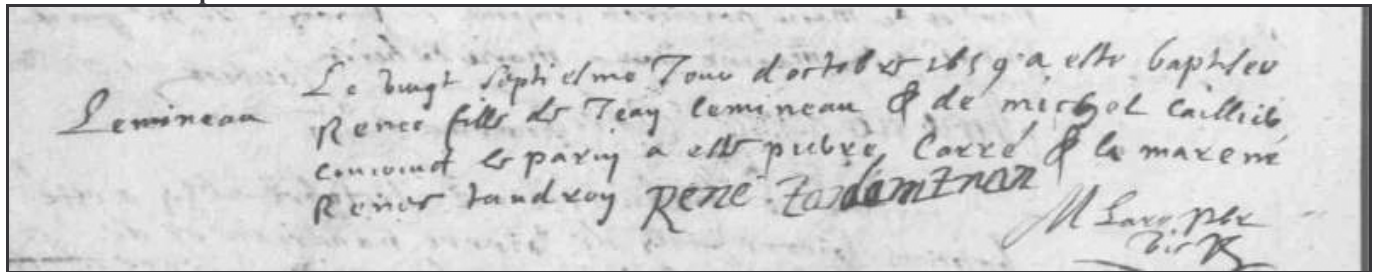 Lemineau
Le vingt septiesme Jour doctobre 1659 a este baptisee
Renee fille de Jean Lemineau & de michel Cailliet
conioinct le parin a este piebre Carré & la marene
Renee tandroy René
M Lary pbr
vic